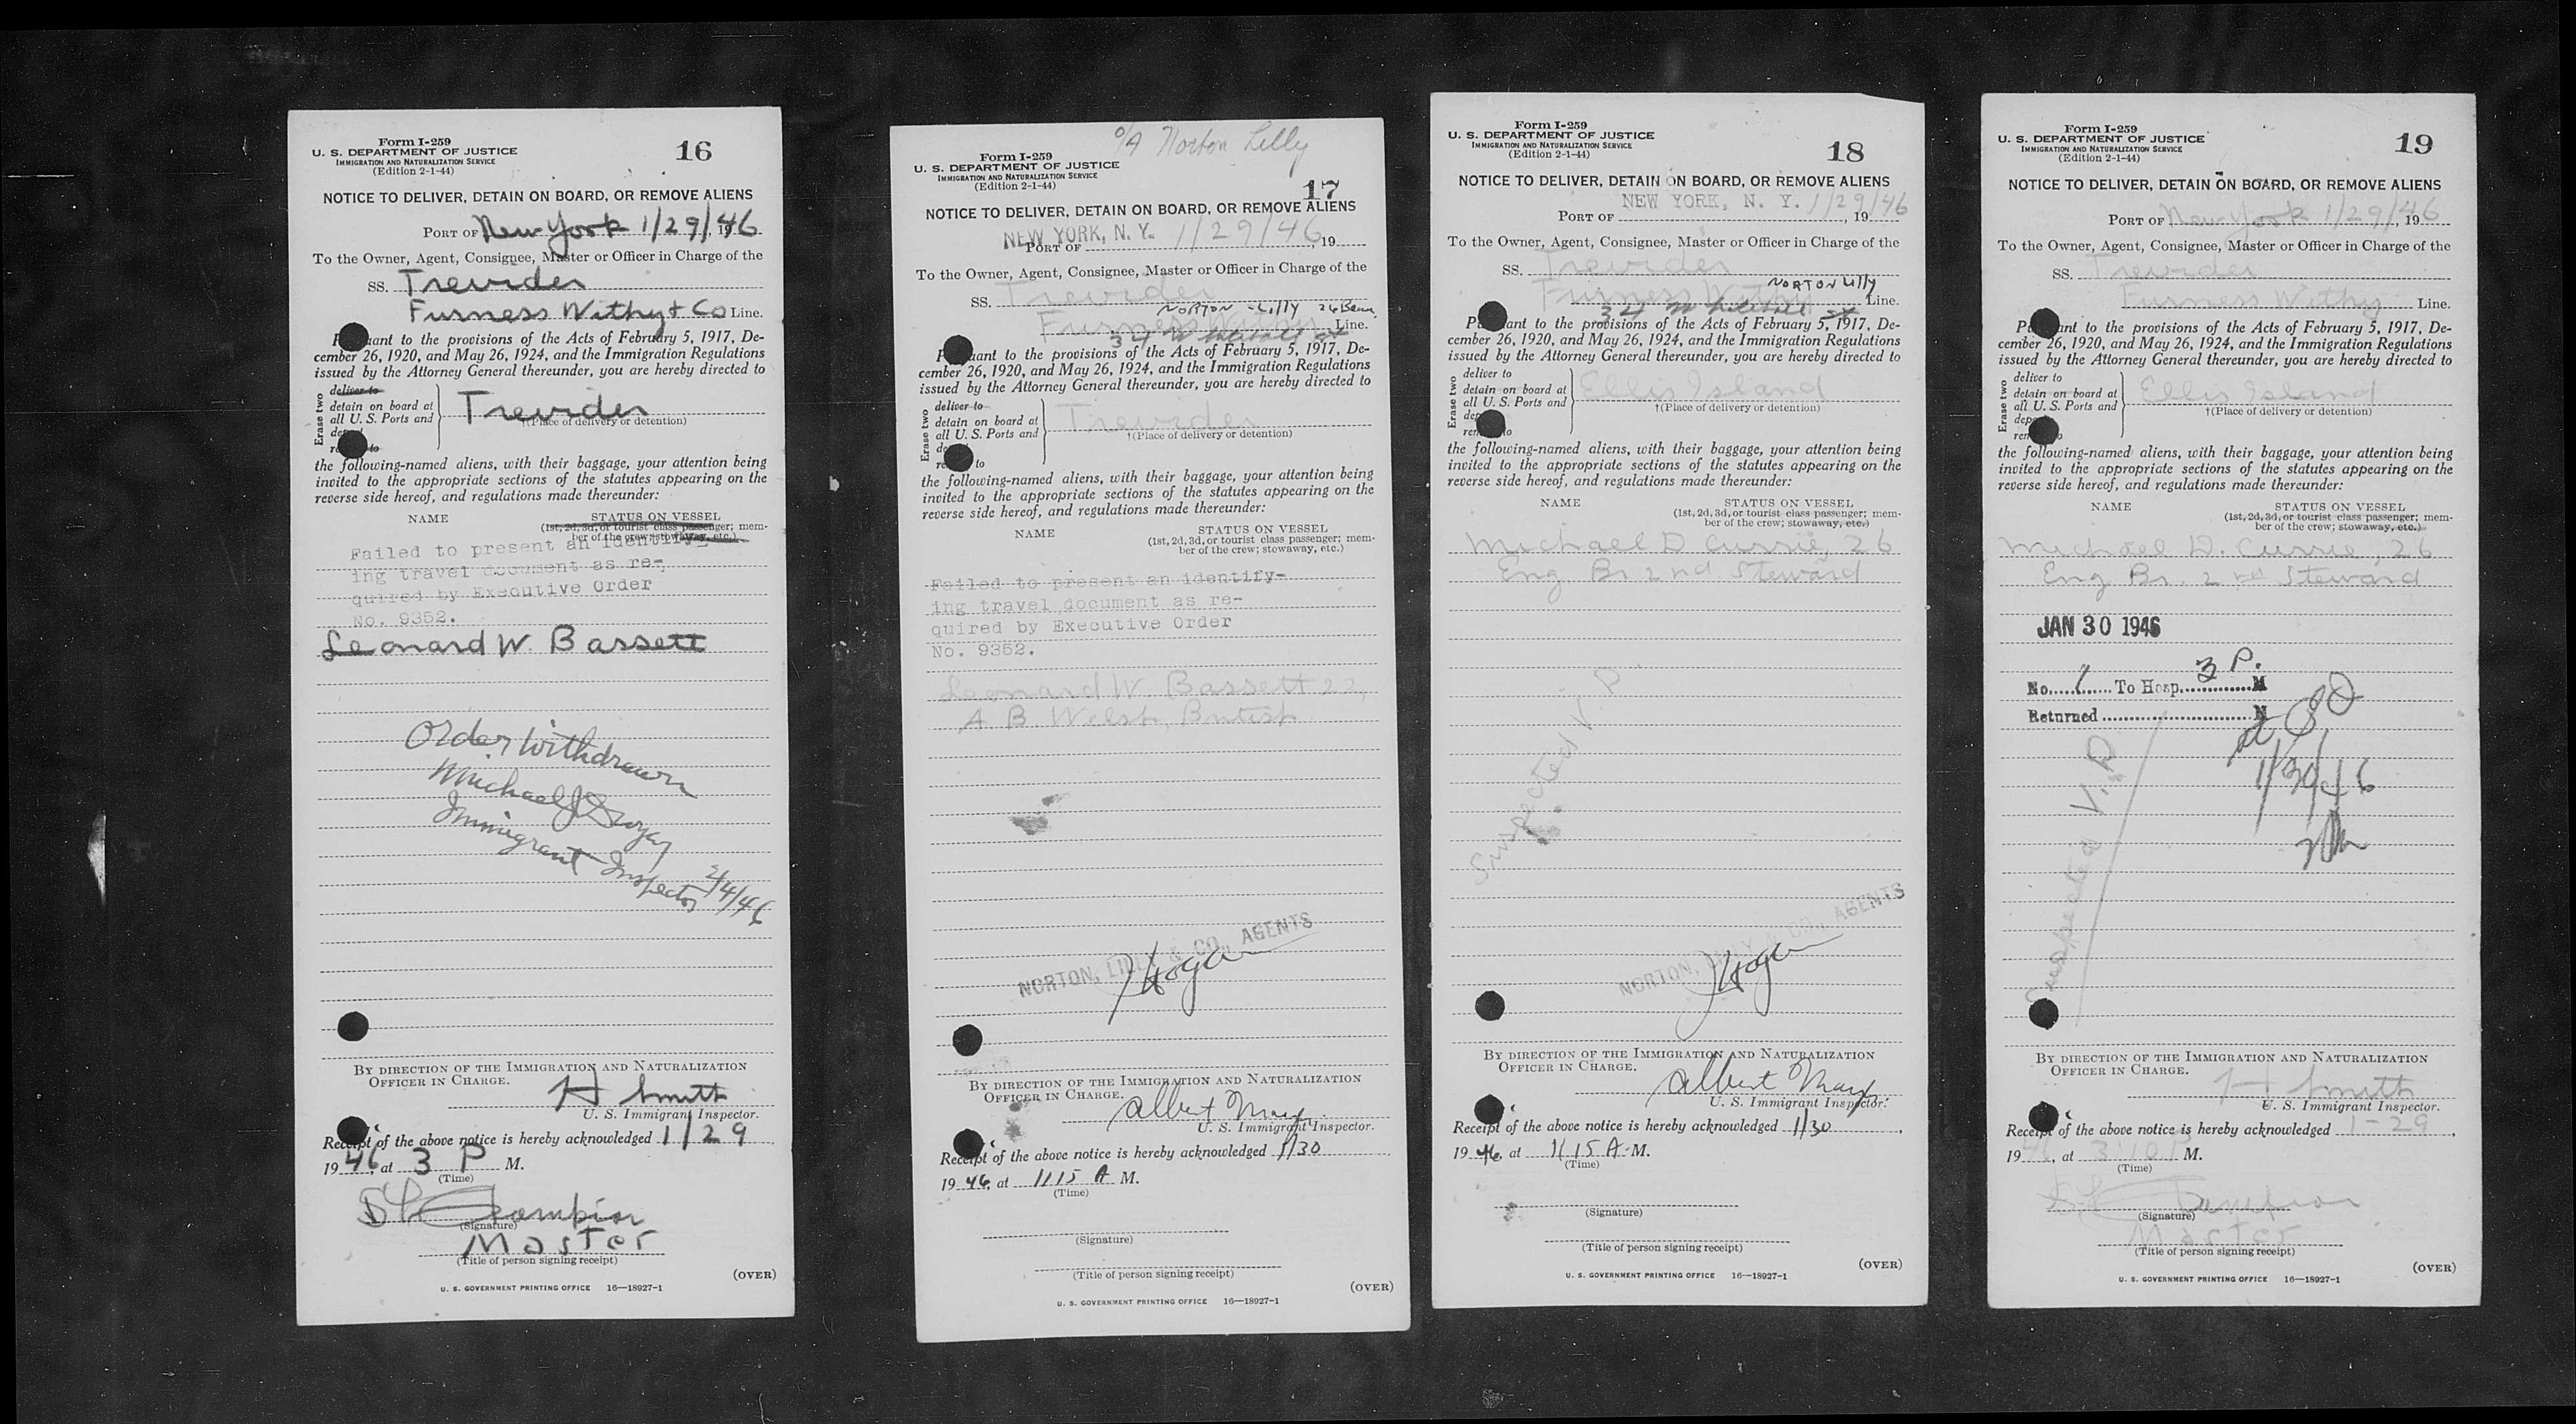 Form I-259
U. S. DEPARTMENT OF JUSTICE
IMMIGRATION AND NATURALIZATION SERVICE
(Edition 2-1-44)
16
NOTICE TO DELIVER, DETAIN ON BOARD, OR REMOVE ALIENS
PORT OF New York 1/29/, 1946
To the Owner, Agent, Consignee, Master or Officer in Charge of the
SS. Trevider
Furness Withy & Co Line.
Pursuant to the provisions of the Acts of February 5, 1917, De-
cember 26, 1920, and May 26, 1924, and the Immigration Regulations
issued by the Attorney General thereunder, you are hereby directed to
Erase two
deliver to
detain on board at
all U. S. Ports and
Trevider
†(Place of delivery or detention)
the following-named aliens, with their baggage, your attention being
invited to the appropriate sections of the statutes appearing on the
reverse side hereof, and regulations made thereunder:
NAME STATUS ON VESSEL
(1st, 2d, 3d, or tourist class passenger; mem-
ber of the crew; stowaway, etc.)
Failed to present an identify-
ing travel document as re-
quired by Executive Order
No. 9352.
Leonard W. Bassett
Order Withdrawn
Michael J
Immigrant Inspector 2/4/46
BY DIRECTION OF THE IMMIGRATION AND NATURALIZATION
OFFICER IN CHARGE.
H Smith
U. S. Immigrant Inspector.
Receipt of the above notice is hereby acknowledged 1/29,
1946, at 3 P M.
(Time)
Champion
(Signature)
Master
(Title of person signing receipt)
(OVER)
U. S. GOVERNMENT PRINTING OFFICE 16—18927-1
O/A Norton Lilly
Form I-259
U. S. DEPARTMENT OF JUSTICE
IMMIGRATION AND NATURALIZATION SERVICE
(Edition 2-1-44)
17
NOTICE TO DELIVER, DETAIN ON BOARD, OR REMOVE ALIENS
NEW YORK, N. Y. 1/29/46
PORT OF , 19
To the Owner, Agent, Consignee, Master or Officer in Charge of the
SS. Trevider
NORTON - Lilly 26 Beav
Furness Withy Line.
34 Whitehall st
Pursuant to the provisions of the Acts of February 5, 1917, De-
cember 26, 1920, and May 26, 1924, and the Immigration Regulations
issued by the Attorney General thereunder, you are hereby directed to
Erase two
deliver to
detain on board at
all U. S. Ports and
Trevider
†(Place of delivery or detention)
the following-named aliens, with their baggage, your attention being
invited to the appropriate sections of the statutes appearing on the
reverse side hereof, and regulations made thereunder:
NAME STATUS ON VESSEL
(1st, 2d, 3d, or tourist class passenger; mem-
ber of the crew; stowaway, etc.)
Failed to present an identify-
ing travel document as re-
quired by Executive Order
No. 9352.
Leonard W. Bassett 22,
A. B. Welsh, British
NORTON, LILLY & CO., AGENTS
J Hogan
BY DIRECTION OF THE IMMIGRATION AND NATURALIZATION
OFFICER IN CHARGE.
Albert Marx
U. S. Immigrant Inspector.
Receipt of the above notice is hereby acknowledged 1/30,
1946, at 1115 A M.
(Time)
(Signature)
(Title of person signing receipt)
(OVER)
U. S. GOVERNMENT PRINTING OFFICE 16—18927-1
Form I-259
U. S. DEPARTMENT OF JUSTICE
IMMIGRATION AND NATURALIZATION SERVICE
(Edition 2-1-44)
18
NOTICE TO DELIVER, DETAIN ON BOARD, OR REMOVE ALIENS
NEW YORK, N. Y. 1/29/46
PORT OF , 19
To the Owner, Agent, Consignee, Master or Officer in Charge of the
SS. Trevider
NORTON Lilly
Furness Withy Line.
34 Whitehall st
Pursuant to the provisions of the Acts of February 5, 1917, De-
cember 26, 1920, and May 26, 1924, and the Immigration Regulations
issued by the Attorney General thereunder, you are hereby directed to
Erase two
deliver to
detain on board at
all U. S. Ports and
Ellis Island
†(Place of delivery or detention)
the following-named aliens, with their baggage, your attention being
invited to the appropriate sections of the statutes appearing on the
reverse side hereof, and regulations made thereunder:
NAME STATUS ON VESSEL
(1st, 2d, 3d, or tourist class passenger; mem-
ber of the crew; stowaway, etc.)
Michael D Currie, 26
Eng. Br 2nd Steward
Suspected V. D.
NORTON, LILLY & CO., AGENTS
J Hogan
BY DIRECTION OF THE IMMIGRATION AND NATURALIZATION
OFFICER IN CHARGE.
Albert Marx
U. S. Immigrant Inspector.
Receipt of the above notice is hereby acknowledged 1/30,
1946, at 1115 A M.
(Time)
(Signature)
(Title of person signing receipt)
(OVER)
U. S. GOVERNMENT PRINTING OFFICE 16—18927-1
Form I-259
U. S. DEPARTMENT OF JUSTICE
IMMIGRATION AND NATURALIZATION SERVICE
(Edition 2-1-44)
19
NOTICE TO DELIVER, DETAIN ON BOARD, OR REMOVE ALIENS
PORT OF New York 1/29/46, 19
To the Owner, Agent, Consignee, Master or Officer in Charge of the
SS. Trevider
Furness Withy Line.
Pursuant to the provisions of the Acts of February 5, 1917, De-
cember 26, 1920, and May 26, 1924, and the Immigration Regulations
issued by the Attorney General thereunder, you are hereby directed to
Erase two
deliver to
detain on board at
all U. S. Ports and
Ellis Island
†(Place of delivery or detention)
the following-named aliens, with their baggage, your attention being
invited to the appropriate sections of the statutes appearing on the
reverse side hereof, and regulations made thereunder:
NAME STATUS ON VESSEL
(1st, 2d, 3d, or tourist class passenger; mem-
ber of the crew; stowaway, etc.)
Michael D. Currie, 26
Eng Br. 2nd Steward
JAN 30 1946
No. 1 To Hosp. 3 P. M
Returned M
1/30/46
Suspected V. D
BY DIRECTION OF THE IMMIGRATION AND NATURALIZATION
OFFICER IN CHARGE.
H Smith
U. S. Immigrant Inspector.
Receipt of the above notice is hereby acknowledged 1-29,
1946, at 3:10 P M.
(Time)
Champion
(Signature)
Master
(Title of person signing receipt)
(OVER)
U. S. GOVERNMENT PRINTING OFFICE 16—18927-1